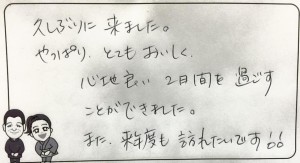 久しぶりに来ました。
やっぱり、とてもおいしく、
心地良い 2日間を過ごす
ことができました。
また、来年度も訪れたいです!!